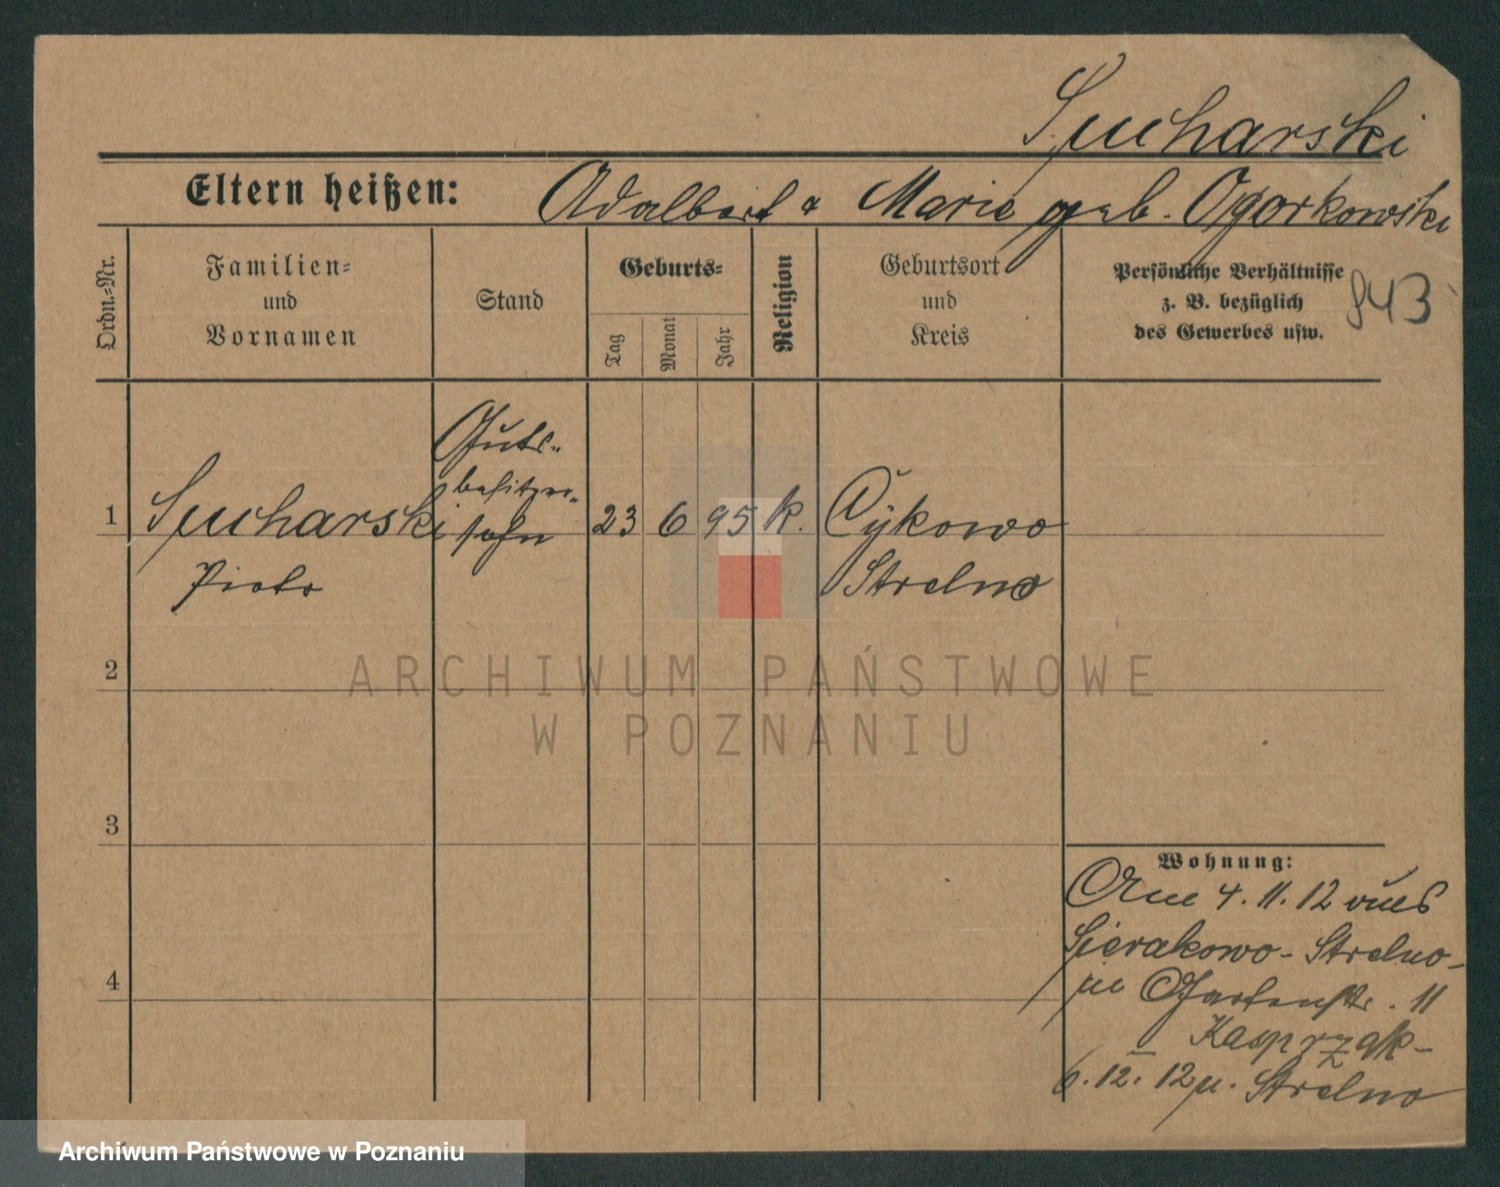 Sucharski
Eltern heißen: Adalbert & Marie geb. Ogorkowski
Ordn.-Nr.
Familien-
und
Vornamen
Stand
Geburts-
Tag
Monat
Jahr
Religion
Geburtsort
und
Kreis
Persönliche Verhältnisse
z. B. bezüglich
des Gewerbes usw.
843
1
Sucharski
Piotr
Guts-
besitzer-
sohn
23 6 95 k.
Cykowo
Strelno
2
3
4
Wohnung:
Am 4. 11. 12 aus
Sierakowo - Strelno -
in Gartenstr. 11
Kasprzak -
6. 12. 12 n. Strelno
ARCHIWUM PAŃSTWOWE
W POZNANIU
Archiwum Państwowe w Poznaniu